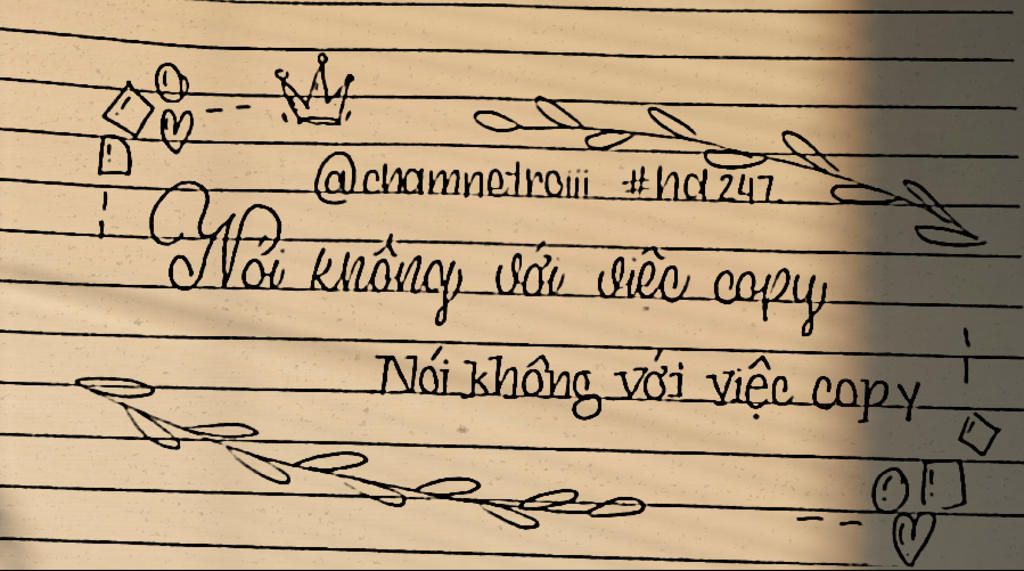 @chamnetroiii #hd247
Nói không với việc copy
Nói không với việc copy